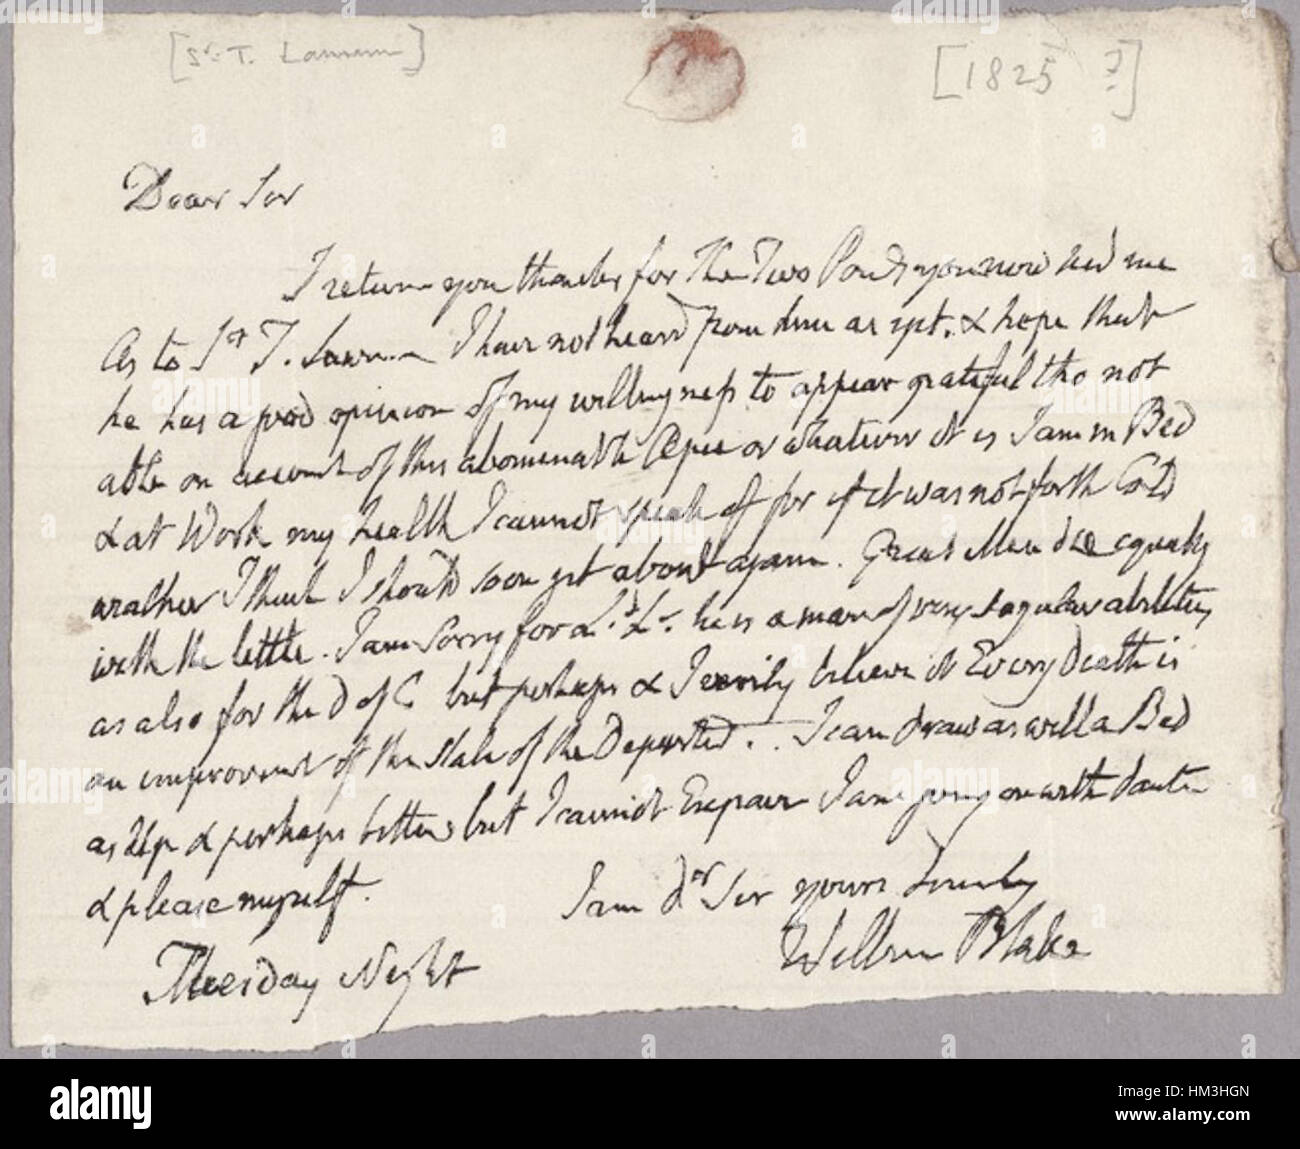 [Sr. T. Lawrence]
[1825 ?]
Dear Sir
I return you thanks for The Two Pounds you now send me
As to Sr T. Lawrence I have not heard from him as yet. & hope that
he has a good opinion of my willingness to appear grateful tho not
able on account of this abominable Ague or whatever it is I am in Bed
& at Work my health I cannot speak of for if it was not for the Cold
weather I think I should soon get about again. Great Men die equally
with the little. I am Sorry for Ld. Ls. he is a man of very singular abilities
as also for the D of C but perhaps & I verily believe it Every Death is
an improvement of the State of the Departed. . I can draw as well a Bed
as Up & perhaps better but I cannot Engrave I am going on with Dante
& please myself.
I am dr Sir yours Truly
William Blake
Tuesday Night
alamy
alamy
HM3HGN
www.alamy.com